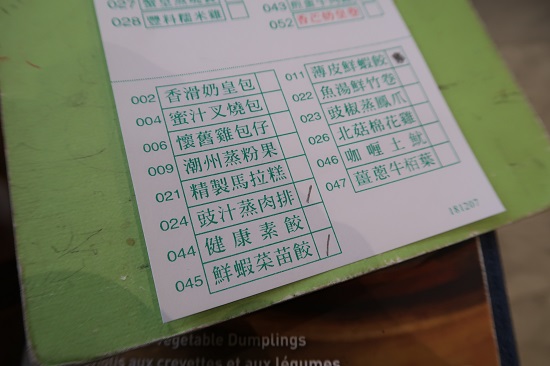 027
028 豐料糯米雞
043
052
002 香滑奶皇包
004 蜜汁叉燒包
006 懷舊雞包仔
009 潮州蒸粉果
021 精製馬拉糕
024 豉汁蒸肉排
044 健康素餃
045 鮮蝦菜苗餃
011 薄皮鮮蝦餃
022 魚湯鮮竹卷
023 豉椒蒸鳳爪
026 北菇棉花雞
046 咖喱土魷
047 薑蔥牛栢葉
181207
Vegetable Dumplings
aux crevettes et aux légumes